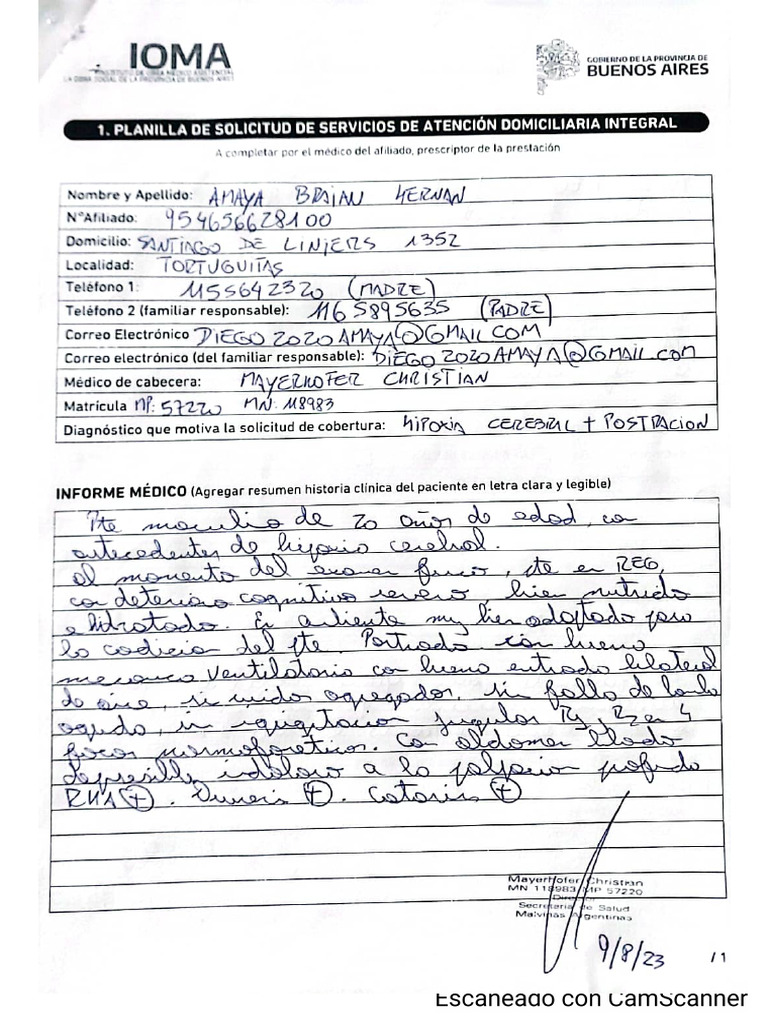 IOMA
INSTITUTO DE OBRA MÉDICO ASISTENCIAL
LA OBRA SOCIAL DE LA PROVINCIA DE BUENOS AIRES
GOBIERNO DE LA PROVINCIA DE
BUENOS AIRES
1. PLANILLA DE SOLICITUD DE SERVICIOS DE ATENCIÓN DOMICILIARIA INTEGRAL
A completar por el médico del afiliado, prescriptor de la prestación
Nombre y Apellido: AMAYA BRAIAN HERNAN
N°Afiliado: 954656628100
Domicilio: SANTIAGO DE LINIERS 1352
Localidad: TORTUGUITAS
Teléfono 1: 1155642320 (MADRE)
Teléfono 2 (familiar responsable): 1165895635 (PADRE)
Correo Electrónico DIEGO2020AMAYA@GMAIL.COM
Correo electrónico (del familiar responsable): DIEGO2020AMAYA@GMAIL.com
Médico de cabecera: MAYERHOFER CHRISTIAN
Matrícula MP: 57220 MN: 118983
Diagnóstico que motiva la solicitud de cobertura: HIPOXIA CEREBRAL + POSTRACION
INFORME MÉDICO (Agregar resumen historia clínica del paciente en letra clara y legible)
Pte masculino de 20 años de edad, con
antecedentes de hipoxia cerebral.
al momento del examen fisico, pte en REG,
con deterioro cognitivo severo, bien nutrido
e hidratado. En ambiente muy bien adaptado para
la condicion del pte. Postrado con buena
mecanica ventilatoria con buena entrada bilateral
de aire, sin ruidos agregados, sin fallo de bomba
aguda, sin ingurgitacion yugular R1, R2 en 4
focos normofoneticos. Con abdomen blando
depresible indoloro a la palpacion profunda
RHA (+). Diuresis (+). Catarsis (+)
Mayerhofer Christian
MN 118983 MP 57220
Director
Secretaria de Salud
Malvinas Argentinas
9/8/23
/1
Escaneado con CamScanner